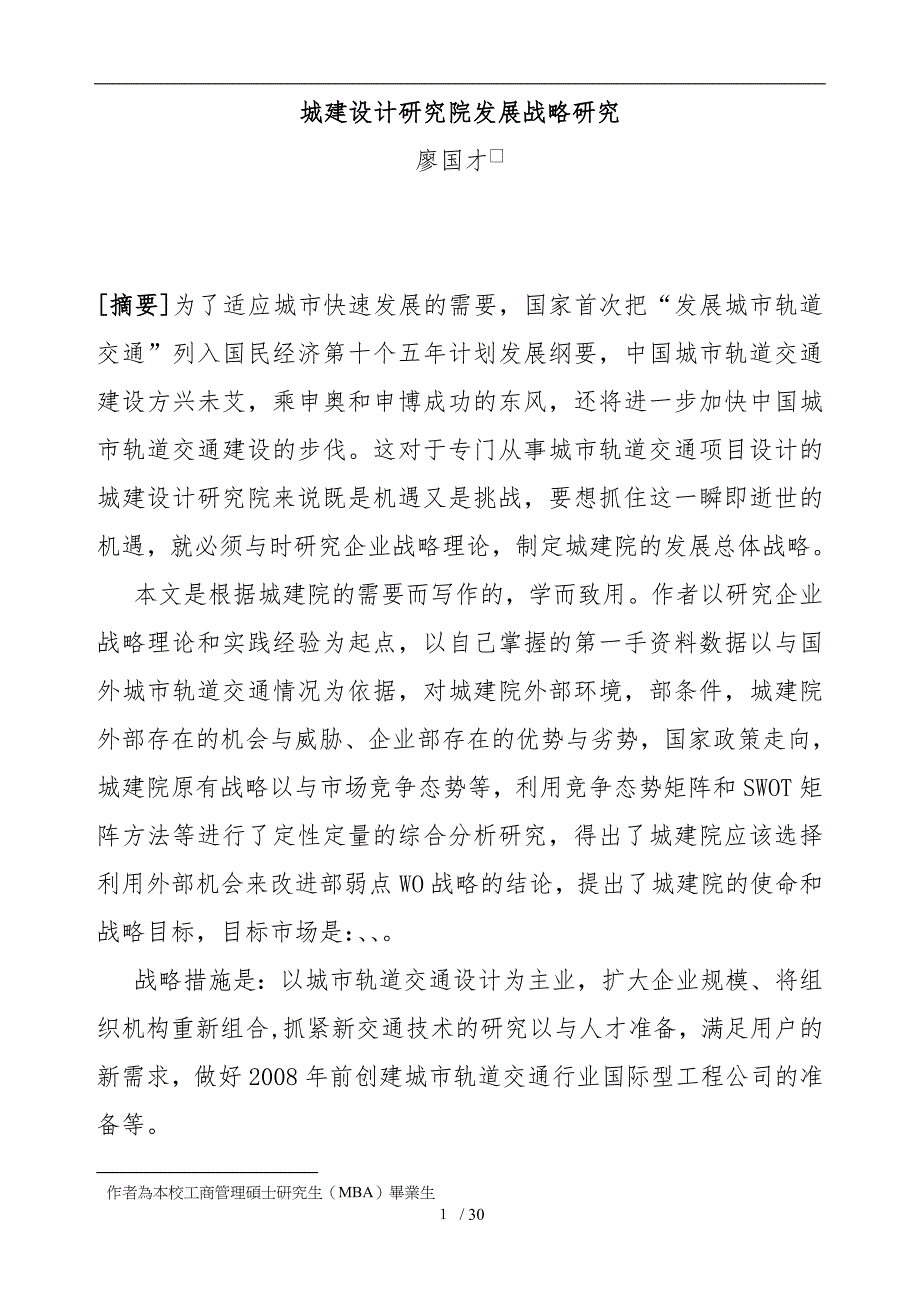 城建设计研究院发展战略研究
廖国才□
[摘要]为了适应城市快速发展的需要，国家首次把“发展城市轨道
交通”列入国民经济第十个五年计划发展纲要，中国城市轨道交通
建设方兴未艾，乘申奥和申博成功的东风，还将进一步加快中国城
市轨道交通建设的步伐。这对于专门从事城市轨道交通项目设计的
城建设计研究院来说既是机遇又是挑战，要想抓住这一瞬即逝世的
机遇，就必须与时研究企业战略理论，制定城建院的发展总体战略。
本文是根据城建院的需要而写作的，学而致用。作者以研究企业
战略理论和实践经验为起点，以自己掌握的第一手资料数据以与国
外城市轨道交通情况为依据，对城建院外部环境，部条件，城建院
外部存在的机会与威胁、企业部存在的优势与劣势，国家政策走向，
城建院原有战略以与市场竞争态势等，利用竞争态势矩阵和SWOT矩
阵方法等进行了定性定量的综合分析研究，得出了城建院应该选择
利用外部机会来改进部弱点WO战略的结论，提出了城建院的使命和
战略目标，目标市场是：、、。
战略措施是：以城市轨道交通设计为主业，扩大企业规模、将组
织机构重新组合,抓紧新交通技术的研究以与人才准备，满足用户的
新需求，做好2008年前创建城市轨道交通行业国际型工程公司的准
备等。
作者為本校工商管理碩士研究生（MBA）畢業生
1 / 30